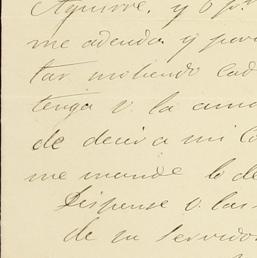 Aguirre, y o p.r
me adeuda. y par
tar moliendo cad
tenga v. la ama
de decir a mi Co
me mande lo de
Dispense v. las
de su Servidor